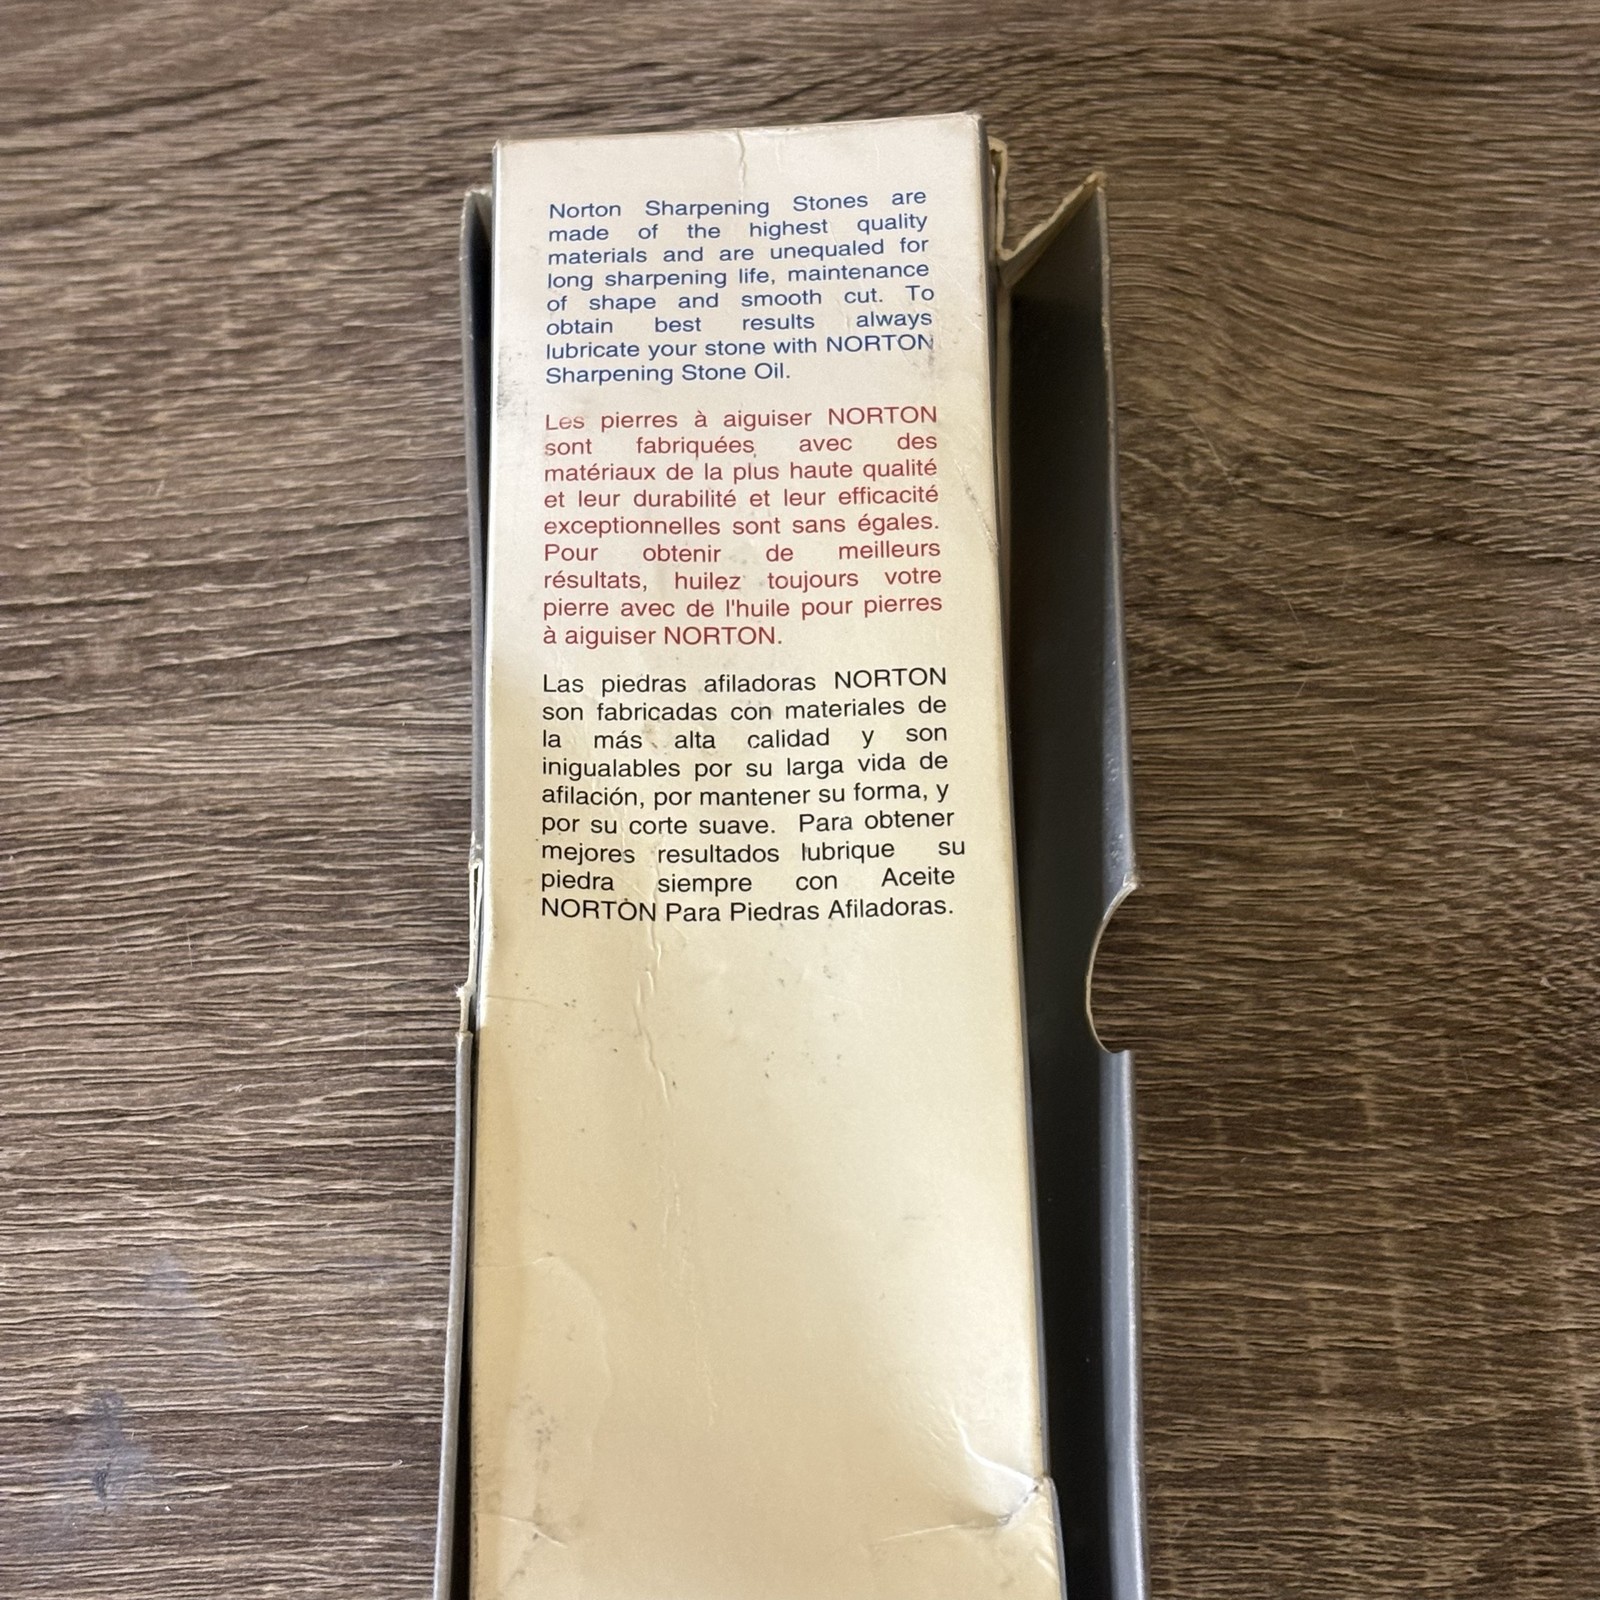 Norton Sharpening Stones are
made of the highest quality
materials and are unequaled for
long sharpening life, maintenance
of shape and smooth cut. To
obtain best results always
lubricate your stone with NORTON
Sharpening Stone Oil.
Les pierres à aiguiser NORTON
sont fabriquées avec des
matériaux de la plus haute qualité
et leur durabilité et leur efficacité
exceptionnelles sont sans égales.
Pour obtenir de meilleurs
résultats, huilez toujours votre
pierre avec de l'huile pour pierres
à aiguiser NORTON.
Las piedras afiladoras NORTON
son fabricadas con materiales de
la más alta calidad y son
inigualables por su larga vida de
afilación, por mantener su forma, y
por su corte suave. Para obtener
mejores resultados lubrique su
piedra siempre con Aceite
NORTON Para Piedras Afiladoras.